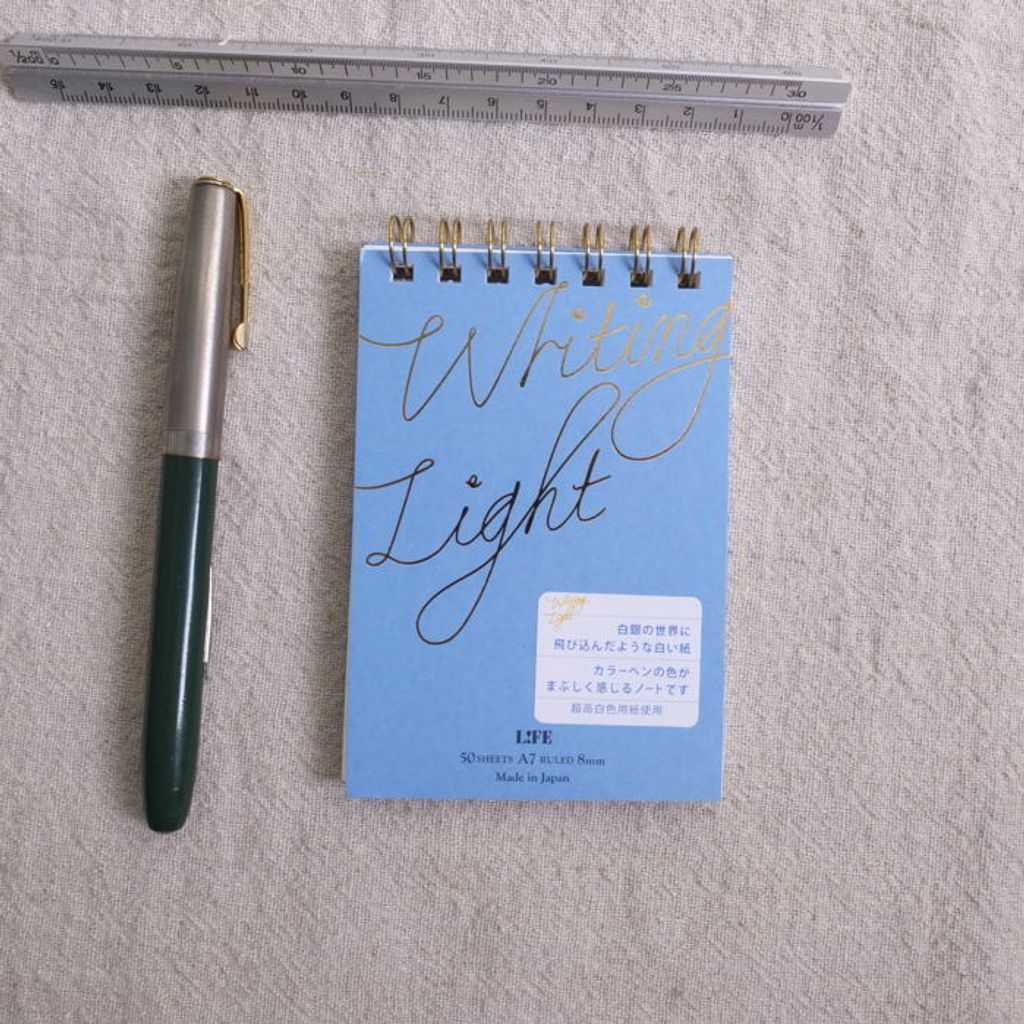 1/200 m 0 5 10 15 20 25 30
15 14 13 12 11 10 9 8 7 6 5 4 3 2 1 0 m 1/100
Writing
Light
Writing
Light
白銀の世界に
飛び込んだような白い紙
カラーペンの色が
まぶしく感じるノートです
超高白色用紙使用
L!FE
50 SHEETS A7 RULED 8mm
Made in Japan